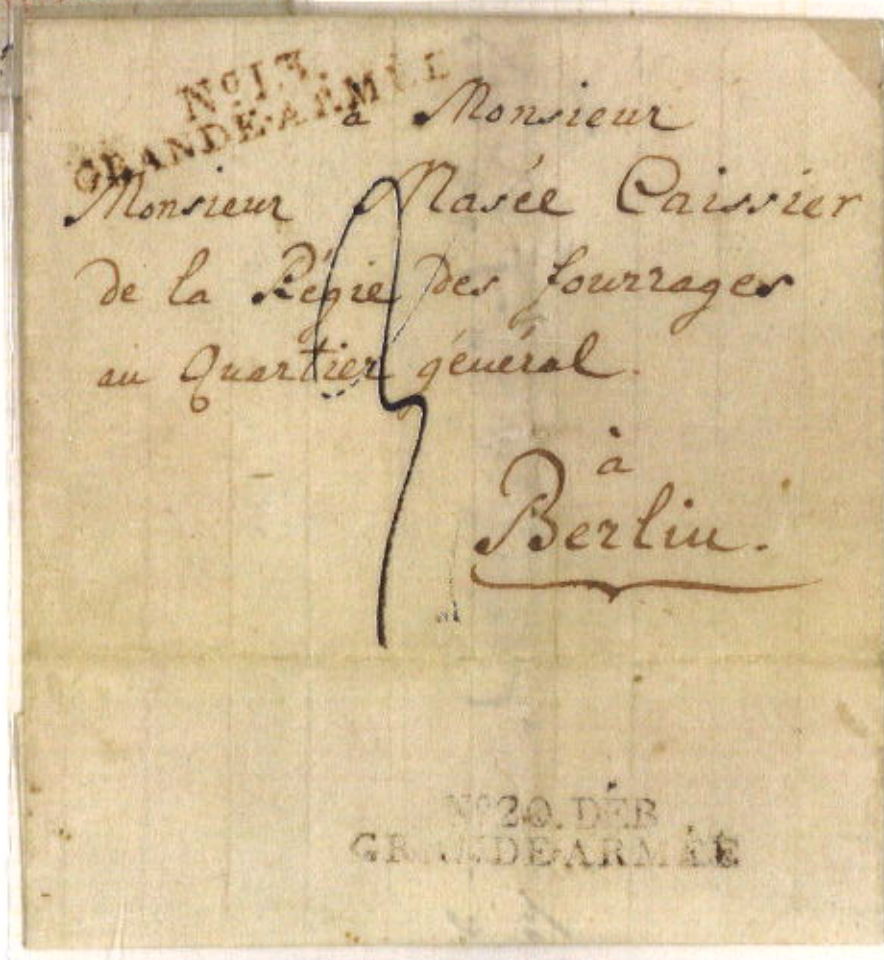 No. 13.
GRANDE-ARMÉE
à Monsieur
Monsieur Masée Caissier
de la Régie des fourrages
au Quartier général.
à
Berlin.
No. 20. DÉB
GRANDE-ARMÉE